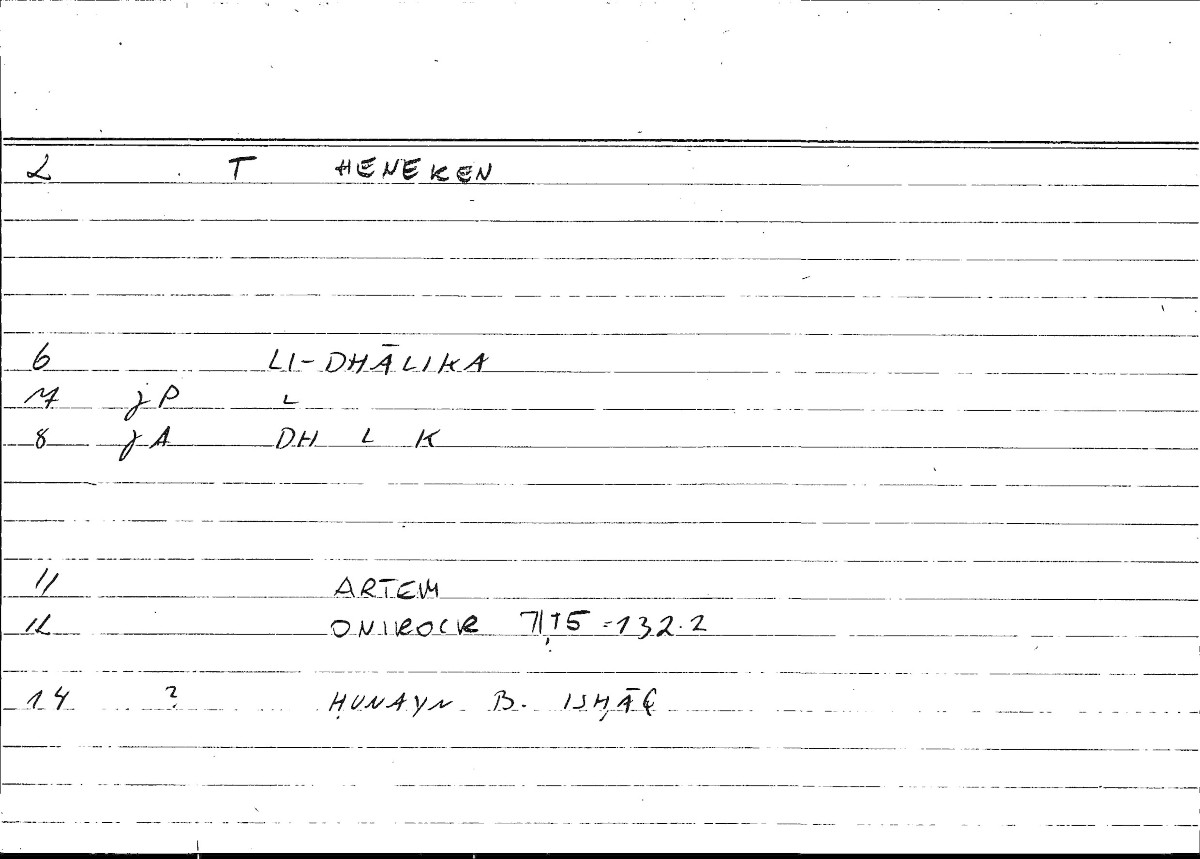 2 T HENEKEN
6 LI-DHĀLIKA
7 jP L
8 jA DH L K
11 ARTEM
12 ONIROCR 7|15 =132.2
14 ? ḤUNAYN B. ISḤĀQ